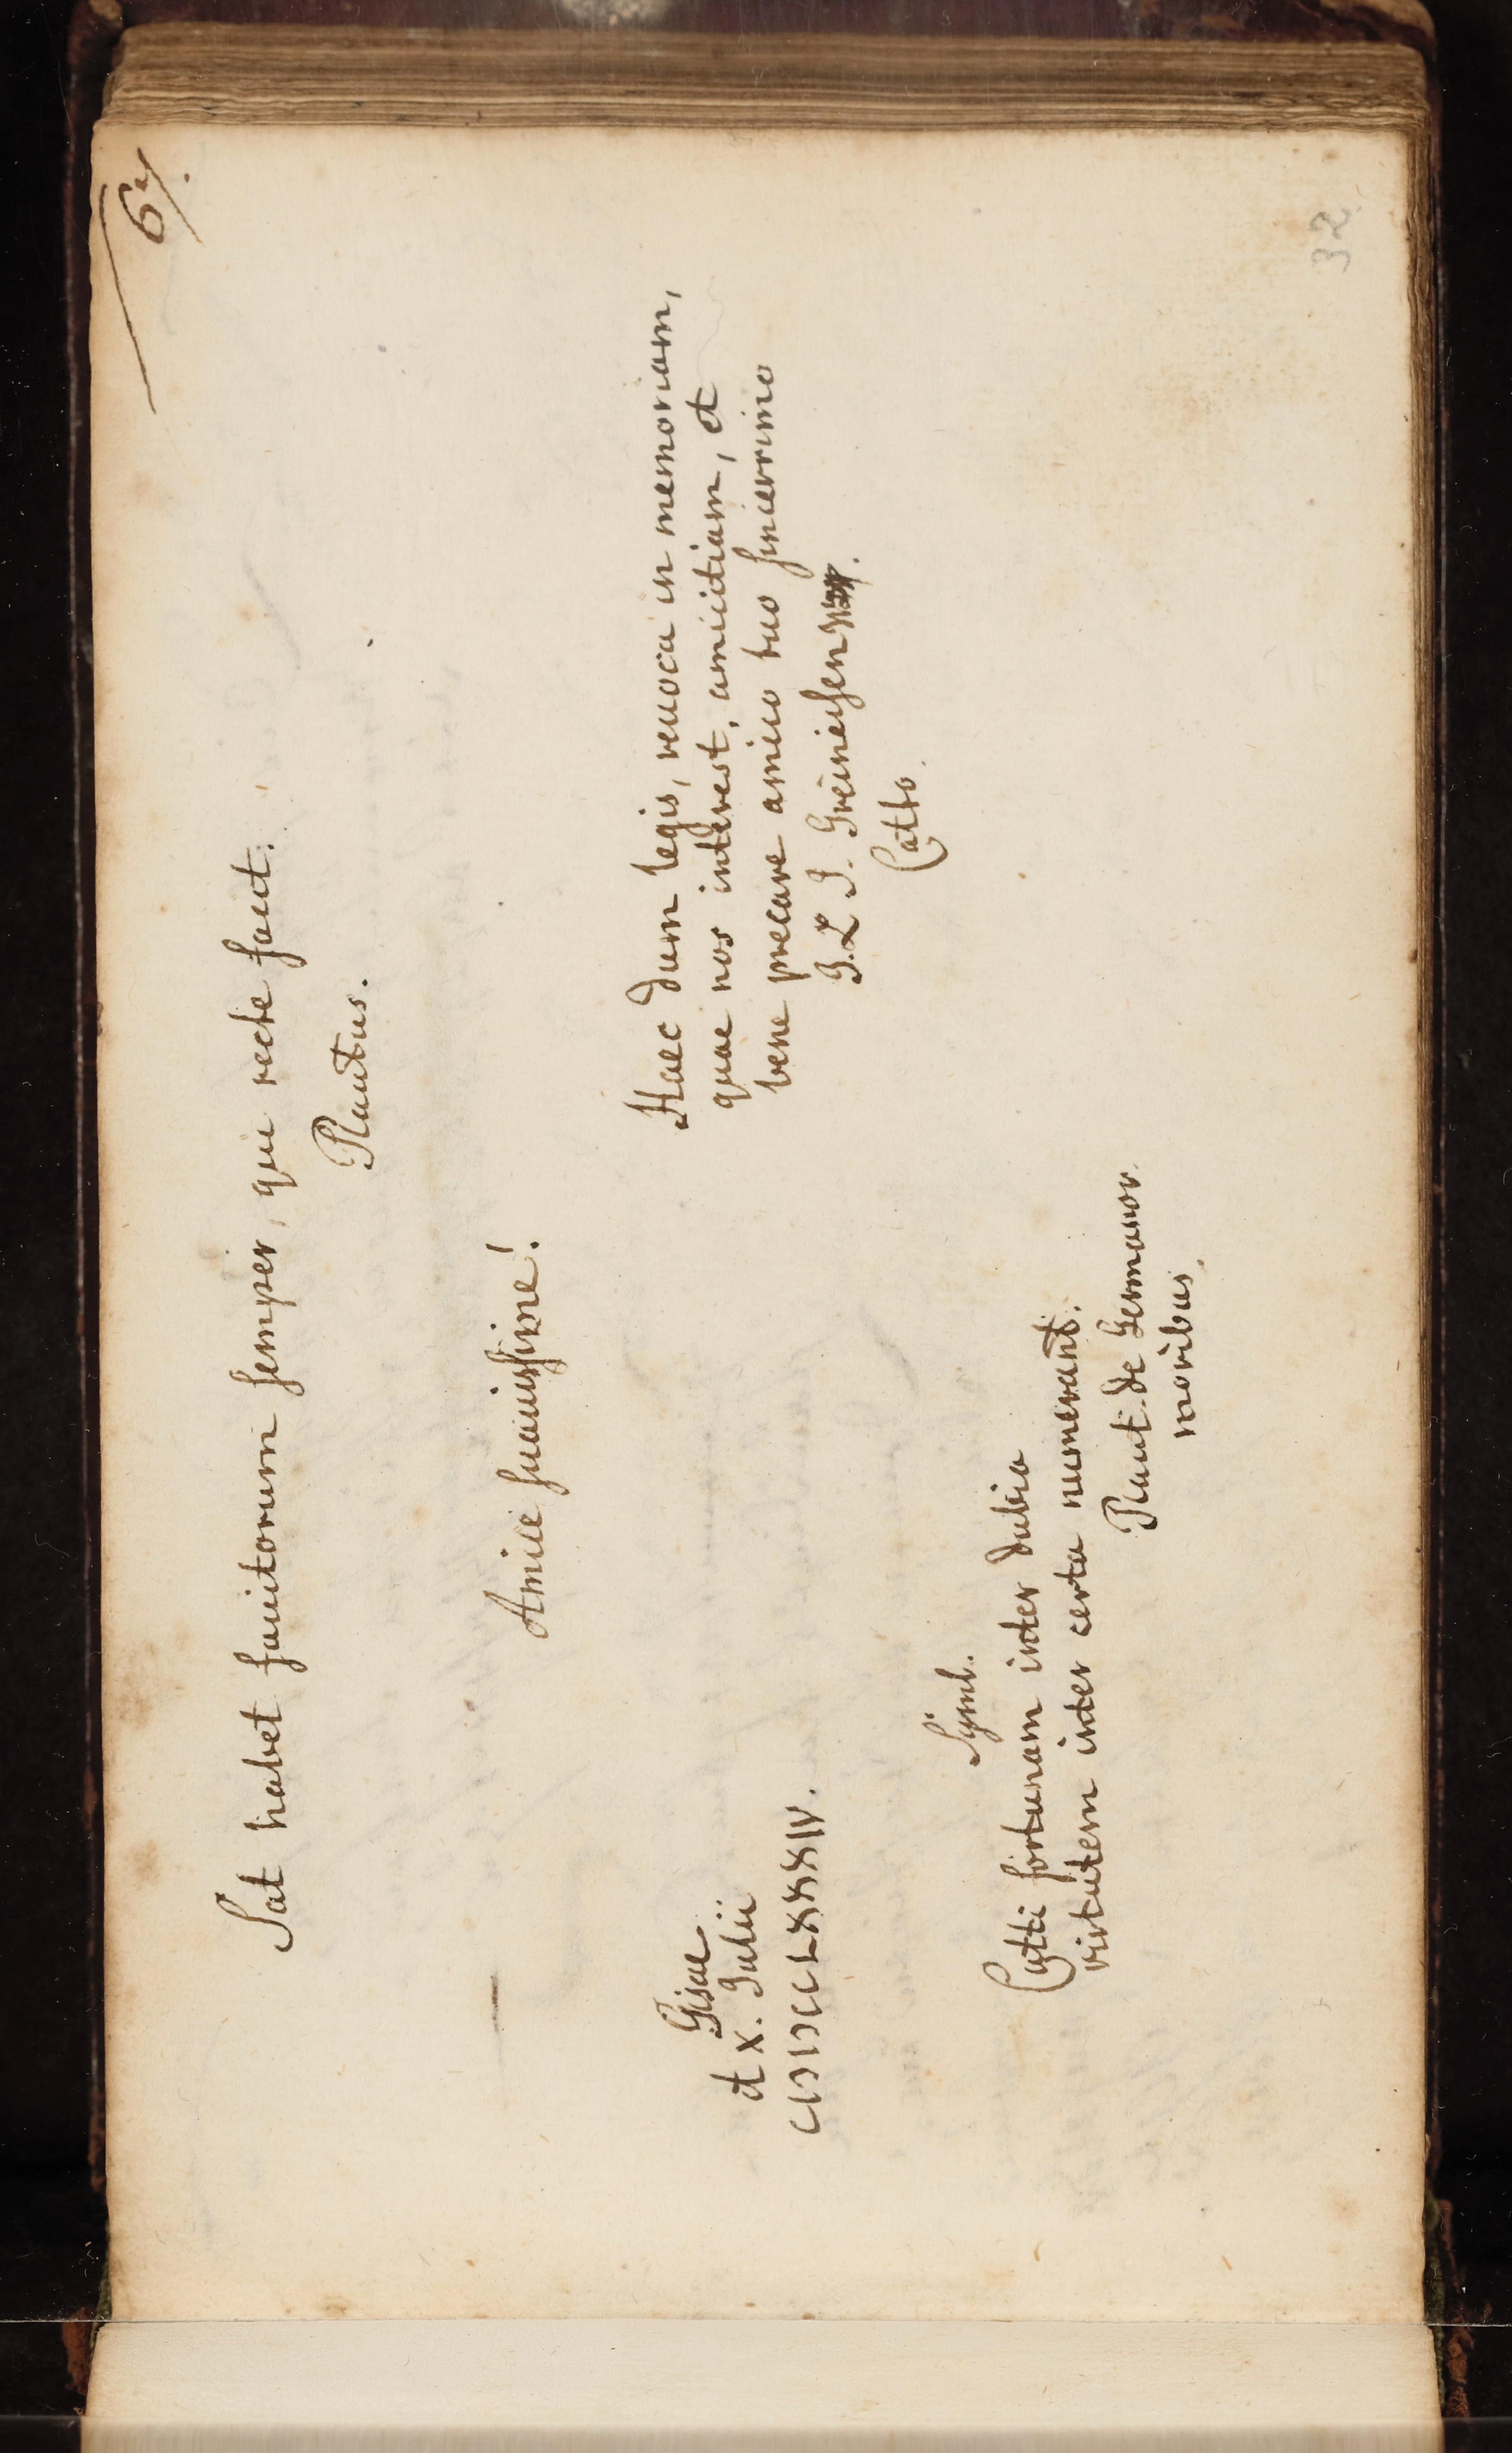 67.
Sat habet fauitorum semper, qui recte facit.
Plautus.
Amice suauissime!
Haec dum legis, reuoca in memoriam,
quae nos interest, amicitiam, et
bene precare amico tuo sincerrimo
J. L. J.
Catto.
Gisae
d x. Julii
CIƆIƆCCLXXXIV.
Symb.
Catti fortunam inter dubia
virtutem inter certa numerant.
Plaut. de Germanor.
moribus.
32